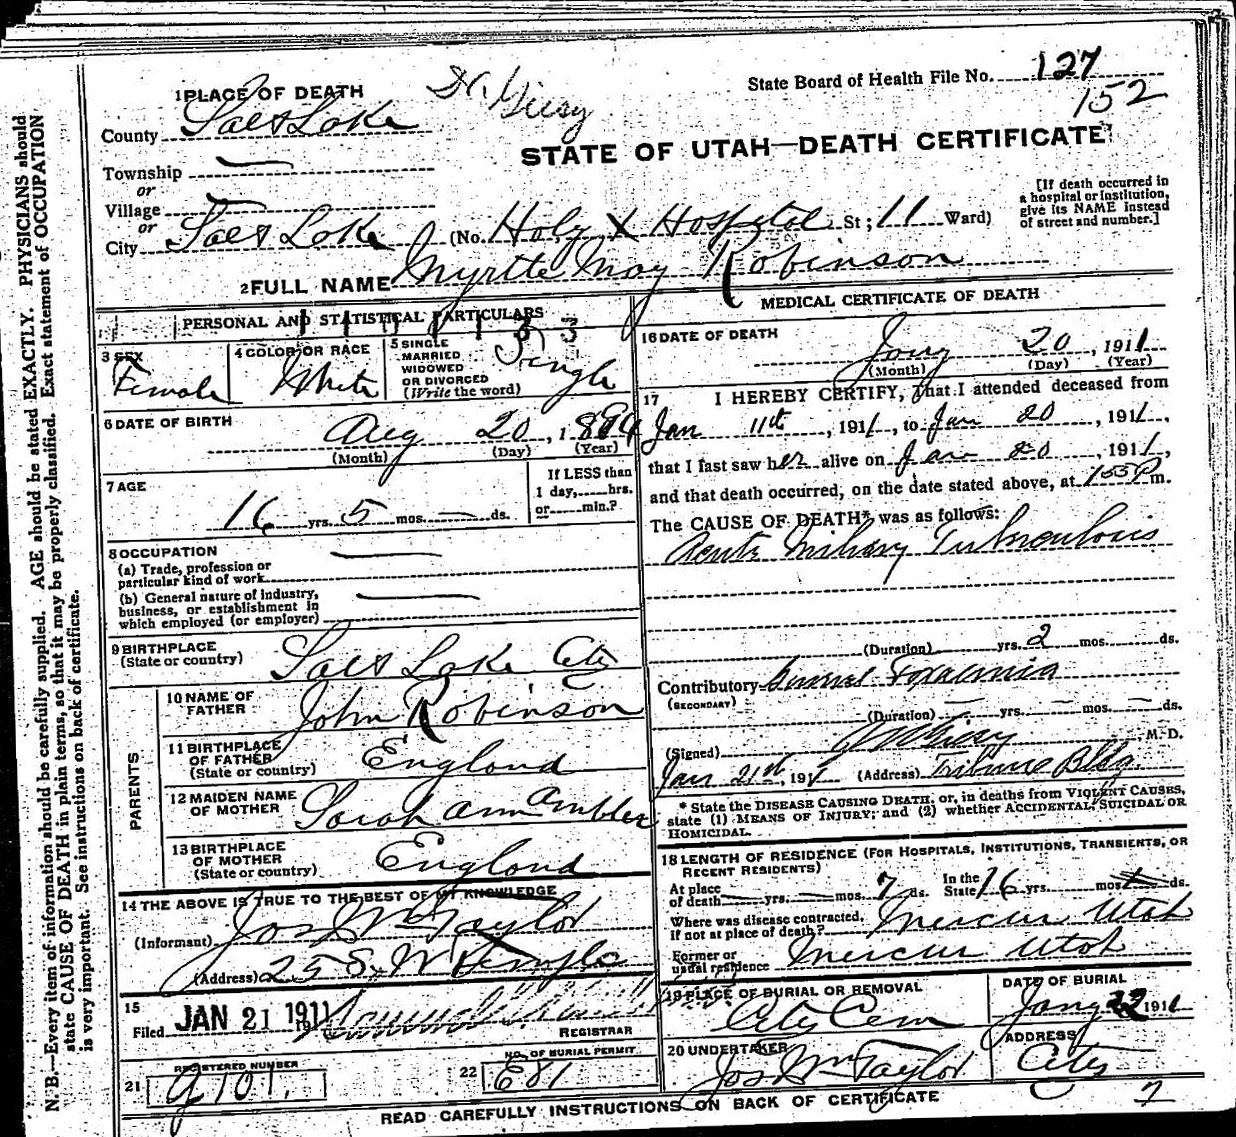 State Board of Health File No. 127
152
1 PLACE OF DEATH
County Salt Lake
STATE OF UTAH—DEATH CERTIFICATE
Township —
or
Village —
or
City Salt Lake (No. Holy X Hospital St; 11 Ward)
[If death occurred in
a hospital or institution,
give its NAME instead
of street and number.]
2 FULL NAME Myrtle May Robinson
PERSONAL AND STATISTICAL PARTICULARS
3 SEX Female
4 COLOR OR RACE White
5 SINGLE
MARRIED
WIDOWED
OR DIVORCED
(Write the word) Single
6 DATE OF BIRTH Aug 20, 1894
(Month) (Day) (Year)
7 AGE 16 yrs. 5 mos. — ds.
If LESS than
1 day, hrs.
or min.?
8 OCCUPATION —
(a) Trade, profession or
particular kind of work
(b) General nature of industry,
business, or establishment in
which employed (or employer) —
9 BIRTHPLACE
(State or country) Salt Lake City
PARENTS
10 NAME OF
FATHER John Robinson
11 BIRTHPLACE
OF FATHER
(State or country) England
12 MAIDEN NAME
OF MOTHER Sarah Ann Ambler
13 BIRTHPLACE
OF MOTHER
(State or country) England
14 THE ABOVE IS TRUE TO THE BEST OF MY KNOWLEDGE
(Informant) Jos Wm Taylor
(Address) 25 S. W Temple
15
Filed JAN 21 1911
REGISTRAR
REGISTERED NUMBER
21 g 101.
NO. OF BURIAL PERMIT
22 E81
MEDICAL CERTIFICATE OF DEATH
16 DATE OF DEATH
Jany 20, 1911
(Month) (Day) (Year)
17 I HEREBY CERTIFY, that I attended deceased from
Jan 11th, 1911, to Jan 20, 1911,
that I last saw her alive on Jan 20, 1911,
and that death occurred, on the date stated above, at 155P m.
The CAUSE OF DEATH* was as follows:
Acute Miliary Tuberculosis
(Duration) yrs. 2 mos. ds.
Contributory
(SECONDARY)
(Duration) — yrs. — mos. — ds.
(Signed) Giesy, M-D.
Jan 21st, 191 (Address) Tribune Bldg.
* State the DISEASE CAUSING DEATH, or, in deaths from VIOLENT CAUSES,
state (1) MEANS OF INJURY; and (2) whether ACCIDENTAL, SUICIDAL OR
HOMICIDAL.
18 LENGTH OF RESIDENCE (FOR HOSPITALS, INSTITUTIONS, TRANSIENTS, OR
RECENT RESIDENTS)
At place
of death — yrs. — mos. 7 ds. In the
State 16 yrs. mos. ds.
Where was disease contracted,
if not at place of death? Mercur Utah
Former or
usual residence Mercur Utah
19 PLACE OF BURIAL OR REMOVAL
City Cem
DATE OF BURIAL
Jany 22 1911
20 UNDERTAKER
Jos Wm Taylor
ADDRESS
City
7
READ CAREFULLY INSTRUCTIONS ON BACK OF CERTIFICATE
N. B.—Every item of information should be carefully supplied. AGE should be stated EXACTLY. PHYSICIANS should
state CAUSE OF DEATH in plain terms, so that it may be properly classified. Exact statement of OCCUPATION
is very important. See instructions on back of certificate.